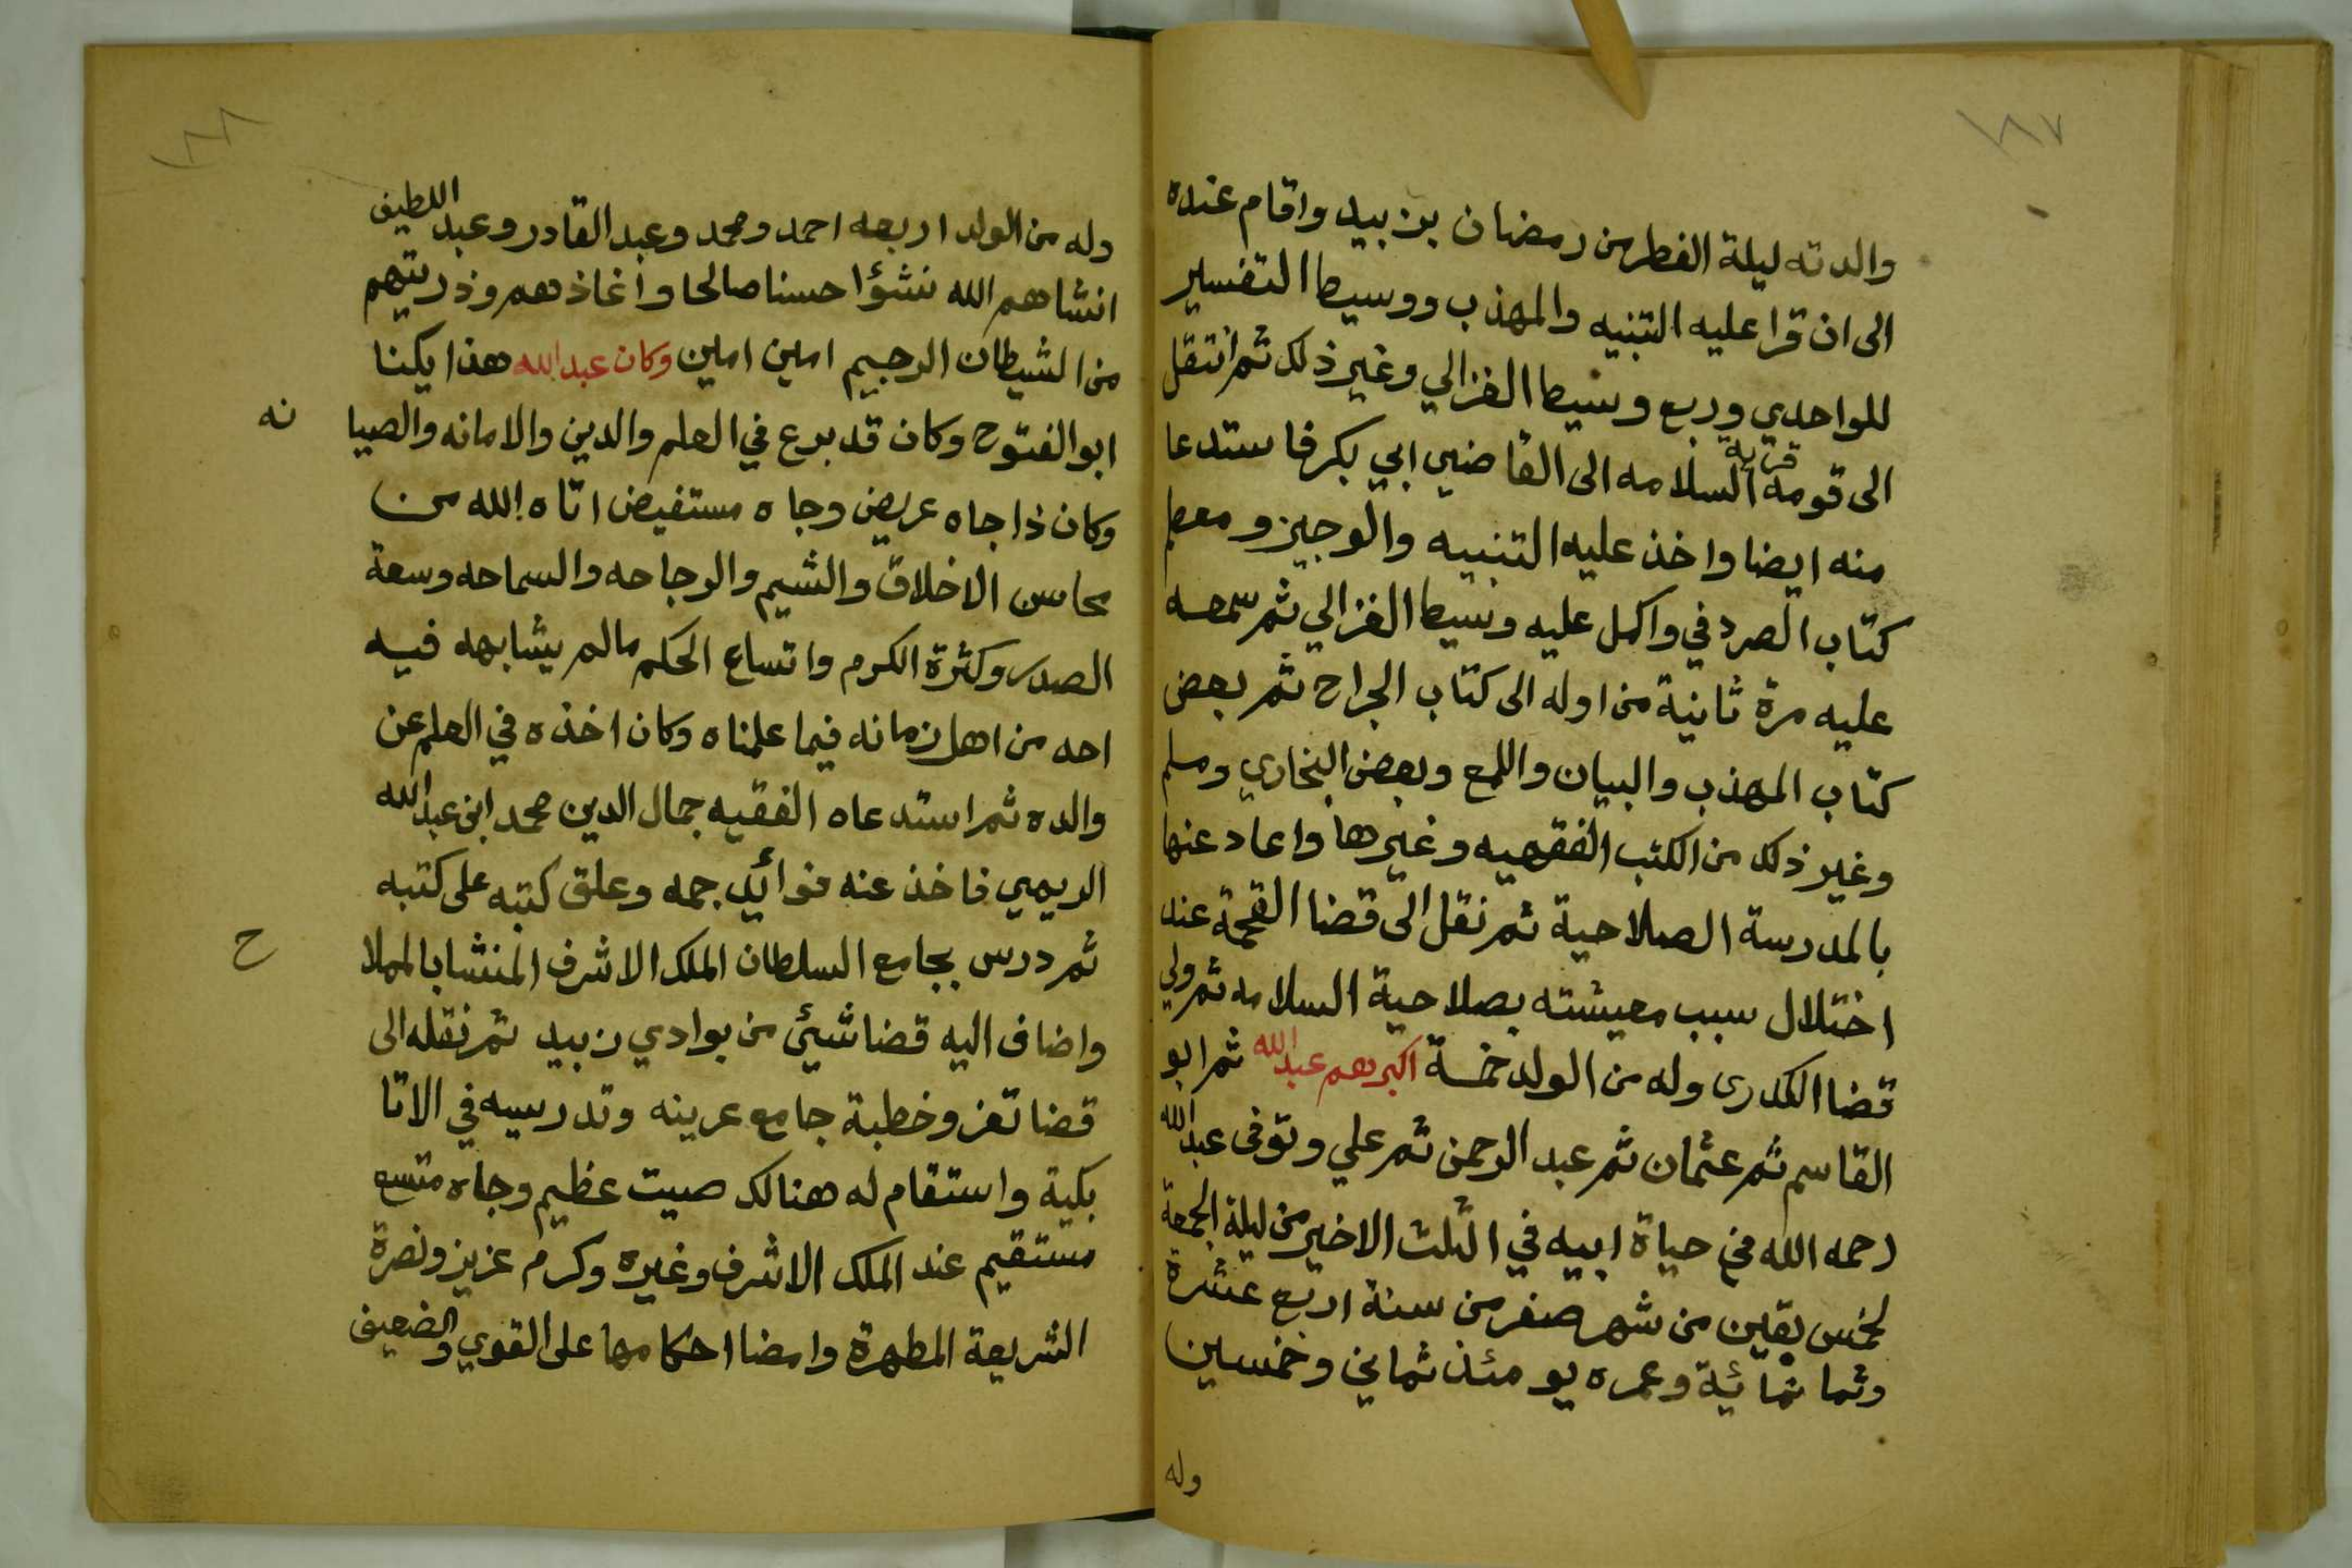 ١٨٧
والدته ليلة الفطر من رمضان بزبيد واقام عنده
الى ان قرا عليه التنبيه والمهذب ووسيط التفسير
للواحدي وربع وسيط الغزالي وغير ذلك ثم انتقل
الى قومه قرية السلامه الى القاضي ابي بكر فاستدعا
منه ايضا واخذ عليه التنبيه والوجيز ومعظم
كتاب الصردفي واكمل عليه وسيط الغزالي ثم سمعه
عليه مرة ثانية من اوله الى كتاب الجراح ثم بعض
كتاب المهذب والبيان واللمع وبعض البخاري ومسلم
وغير ذلك من الكتب الفقهيه وغيرها واعاد عنها
بالمدرسة الصلاحية ثم نقل الى قضا القحمة عند
اختلال سبب معيشته بصلاحية السلامه ثم ولي
قضا الكدرى وله من الولد خمسة اكبرهم عبد الله ثم ابو
القاسم ثم عثمان ثم عبد الرحمن ثم علي وتوفى عبد الله
رحمه الله في حياة ابيه في الثلث الاخير من ليلة الجمعة
لخمس بقين من شهر صفر من سنة اربع عشرة
وثمانمائية وعمره يومئذ ثماني وخمسين
وله
١٨٨
وله من الولد اربعه احمد ومحمد وعبد القادر وعبد اللطيف
انشاهم الله نشؤا حسنا صالحا واعاذهم وذريتهم
من الشيطان الرجيم امين امين وكان عبد الله هذا يكنا
ابو الفتوح وكان قد برع في العلم والدين والامانه والصيا نه
وكان ذا جاه عريض وجاه مستفيض اتاه الله من
محاسن الاخلاق والشيم والرجاحه والسماحه وسعة
الصدر وكثرة الكرم واتساع الحكم مالم يشابهه فيه
احد من اهل زمانه فيما علمناه وكان اخذه في العلم عن
والده ثم استدعاه الفقيه جمال الدين محمد ابن عبد الله
الريمي فاخذ عنه فوائد جمه وعلق كتبه على كتبه
ثم درس بجامع السلطان الملك الاشرف المنشا بالمملا ح
واضاف اليه قضا شيئ من بوادي زبيد ثم نقله الى
قضا تعز وخطبة جامع عرينه وتدريسه في الاتا
بكية واستقام له هنالك صيت عظيم وجاه متسع
مستقيم عند الملك الاشرف وغيره وكرم عزيز ونصرة
الشريعة المطهرة وامضا احكامها على القوي والضعيف